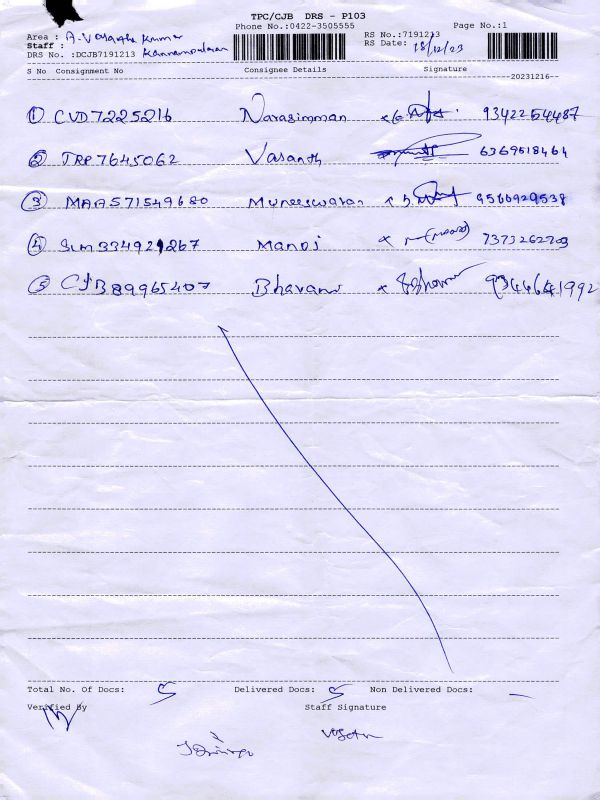 TPC/CJB DRS - P103
Phone No.:0422-3505555 RS No.:7191213 Page No.:1
Area : A. Vasantha Kumar RS Date: 18/12/23
Staff :
DRS No. :DCJB7191213 Kannampalayam
S No Consignment No Consignee Details Signature
20231216
1 CVD7225216 Narasimman 9342254487
2 TRP7645062 Vasanth 6369518464
3 MAA571549680 Muneeswaran 9566929538
4 SLM334921267 Manoj (Manoj) 7373262703
5 CJB89965407 Bhavani 9344641992
Total No. Of Docs: 5 Delivered Docs: 5 Non Delivered Docs: -
Verified By Staff Signature